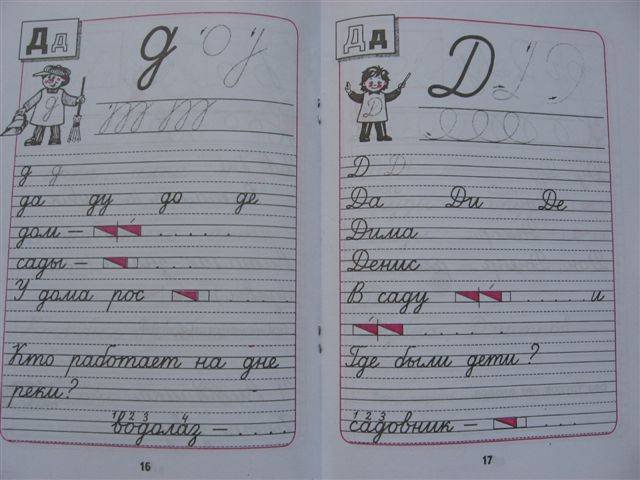 Д д
д
д д
да ду до де
дом – . . . . . .
сады – . . . .
У дома рос . . . .
Кто работает на дне
реки?
1 2 3 4
водолаз – . . . .
16
Д д
Д
Д
Д Д
Да Ди Де
Дима
Денис
В саду . . . . . и
. . . . . . .
Где были дети?
1 2 3
садовник – . . . .
17